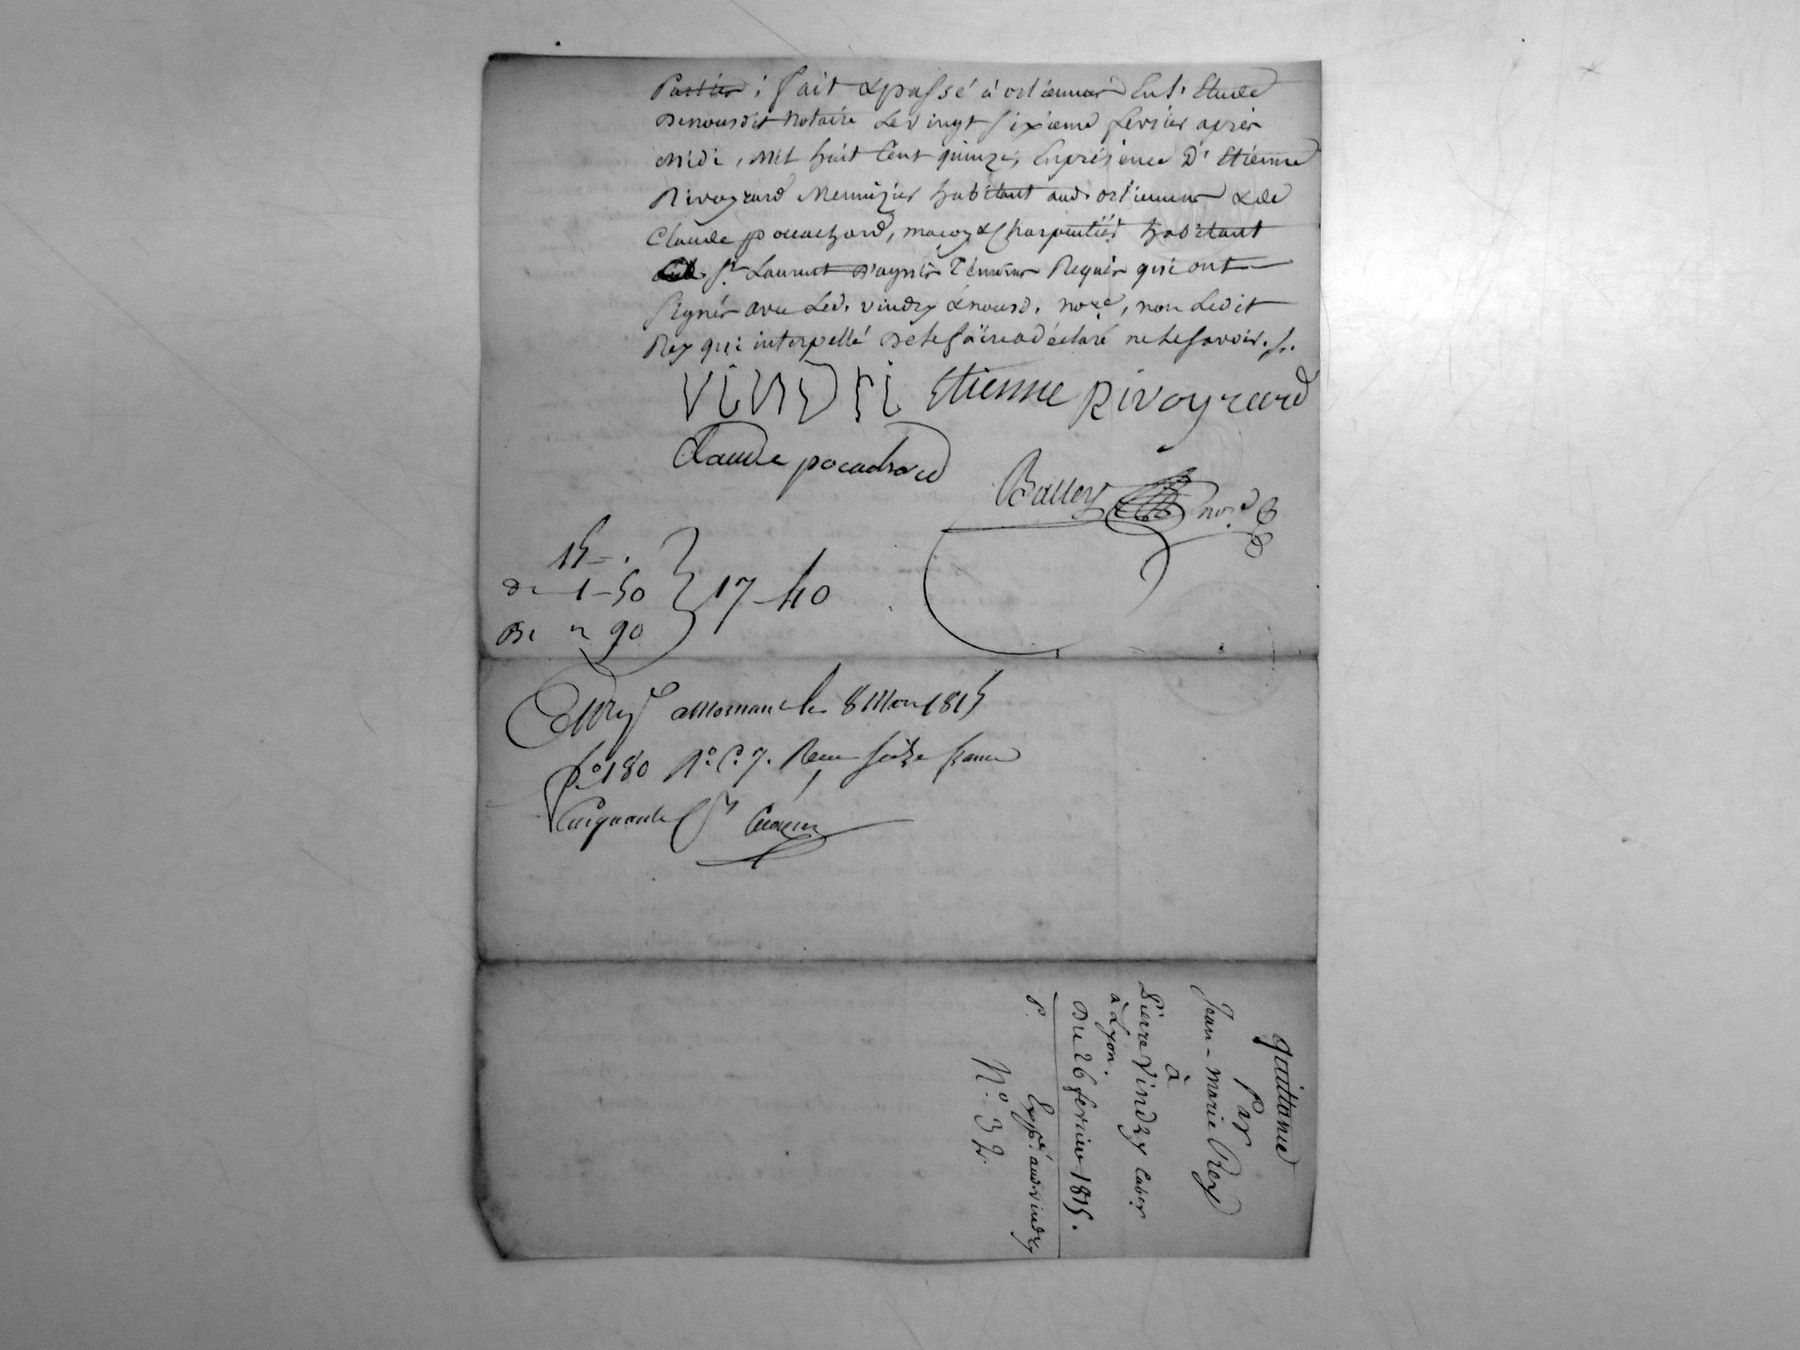 Parties ; fait & passé à ortiennas En l'Etude
De nousdit Notaire Le vingt sixieme fevrier après
Midi, Mil huit Cent quinze, En présence D'Etienne
Rivoyrard Menuizier habitant aud. ortiennas & de
Claude pouachard, maçon & Charpentier habitant
St. Laurent D'agnis Témoins Requis qui ont
Signés avec Led. vindry & nousd. nore, non Ledit
Rey qui interpellé De le faire a déclaré ne le savoir. /.
vindri Etienne Rivoyrard
Claude pouachard
Balley nore
15 - .
de 1 - 50
De " 90
17 - 40
Enreg à Mornant le 8 Mars 1815
fo 180 Ro Co 7. Reçu seize francs
Cinquante
quittance
Par
Jean-Marie Rey
à
Pierre Vindry Caber
à Lyon.
Du 26 fevrier 1815.
P. Expé. aud. vindry
No. 32.